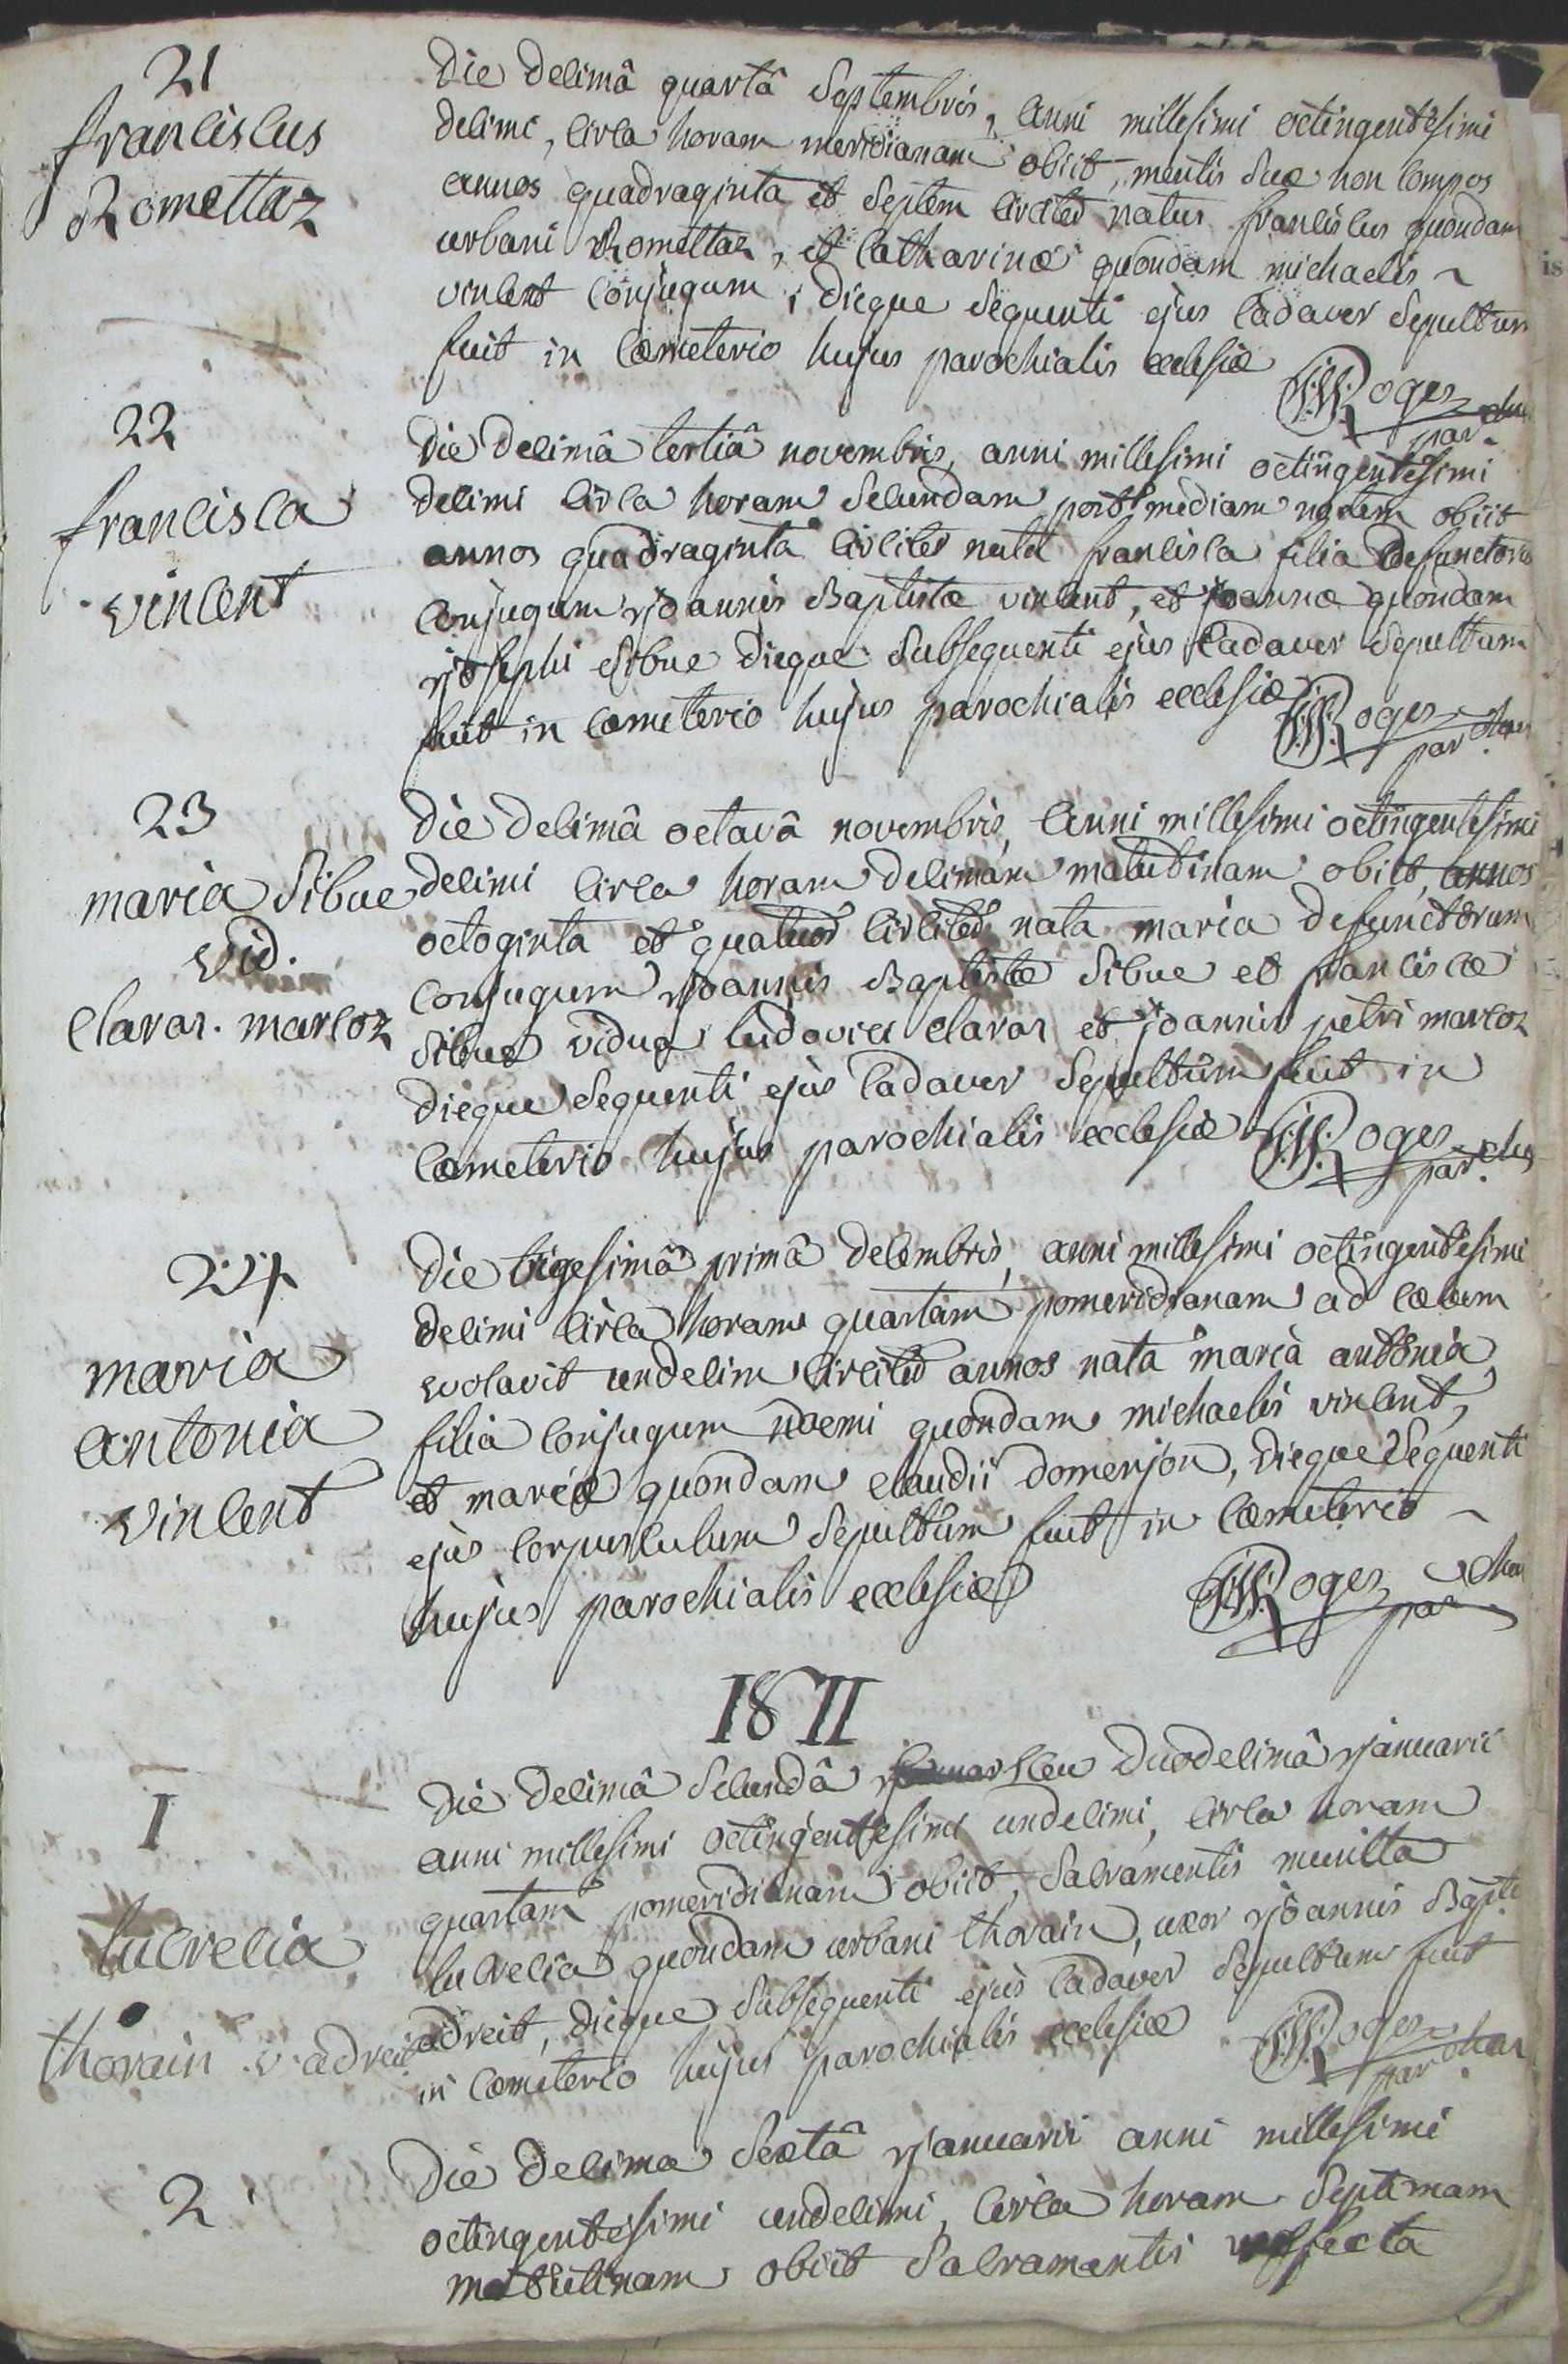 21
franciscus
Romettaz
Die decimâ quartâ Septembris, anni millesimi octingentesimi
decimi, circa horam meridianam obiit, mentis suæ non compos
annos quadraginta et septem circiter natus franciscus quondam
urbani Romettaz, et Catharinæ quondam michaelis ~
vincent conjugum, dieque sequenti ejus cadaver sepultum
fuit in cœmeterio hujus parochialis ecclesiæ
Roges parchus
22
francisca
vincent
Die decimâ tertiâ novembris, anni millesimi octingentesimi
decimi circa horam secundam post mediam noctem obiit
annos quadraginta circiter nata francisca filia defunctorum
conjugum joannis Baptistæ vincent, et joannæ quondam
josephi Sibue dieque subsequenti ejus cadaver sepultum
fuit in cœmeterio hujus parochialis ecclesiæ
Roges parchus
23
maria Sibue
vid.
Claraz. marcoz
Die decimâ octavâ novembris, anni millesimi octingentesimi
decimi circa horam decimam matutinam obiit, annos
octoginta et quatuor circiter nata maria defunctorum
conjugum joannis Baptistæ Sibue et franciscæ
Sibue vidua ludovici claraz et joannis petri marcoz
dieque sequenti ejus cadaver sepultum fuit in
cœmeterio hujus parochialis ecclesiæ
Roges parchus
24
maria
antonia
vincent
Die vigesimâ primâ decembris, anni millesimi octingentesimi
decimi circa horam quartam pomeridianam ad cælum
evolavit undecim circiter annos nata maria antonia,
filia conjugum noemi quondam michaelis vincent,
et mariæ quondam claudii domenjon, dieque sequenti
ejus corpusculum sepultum fuit in cœmeterio ~
hujus parochialis ecclesiæ
Roges parchus
1811
I
lucrecia
thorain v. adreit
Die decimâ secundâ seu duodecimâ januarii
anni millesimi octingentesimi undecimi, circa horam
quartam pomeridianam obiit, sacramentis munita
lucrecia quondam urbani thorain, uxor joannis Bapte
adreit, dieque subsequenti ejus cadaver sepultum fuit
in cœmeterio hujus parochialis ecclesiæ
Roges parchus
2
Die decima sextâ januarii anni millesimi
octingentesimi undecimi, circa horam septimam
matutinam obiit sacramentis refecta